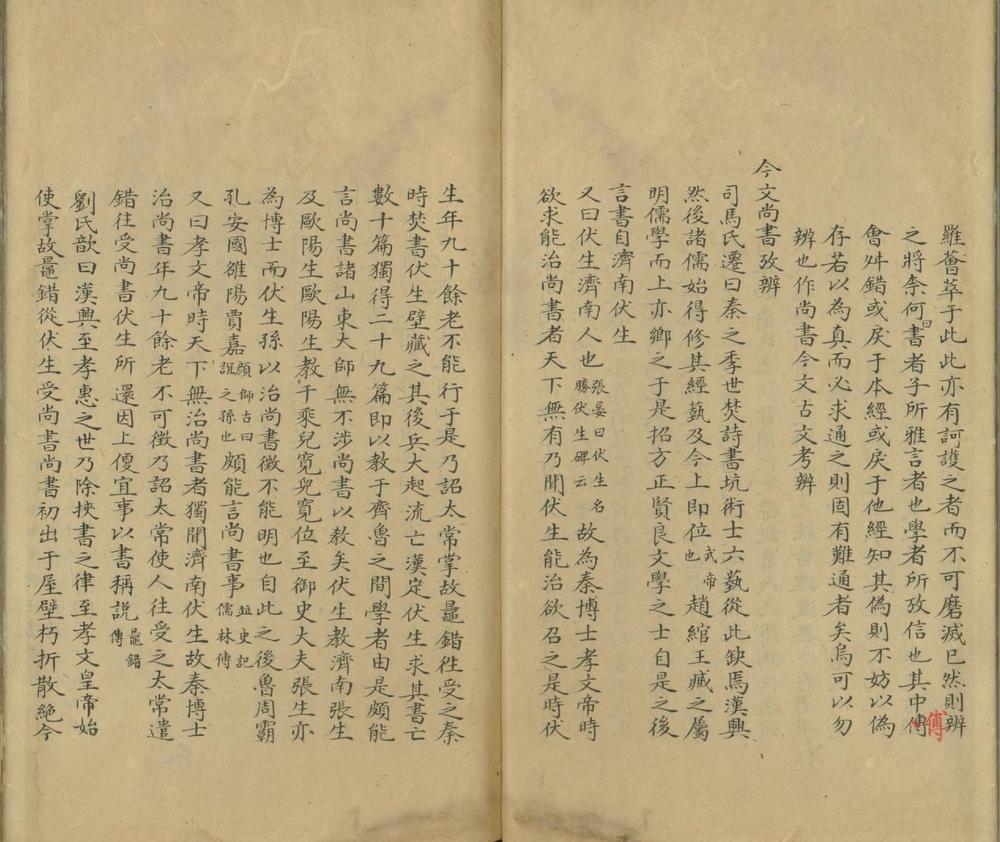 羅薈萃于此此亦有訶護之者而不可磨滅已然則辨
之將柰何曰書者子所雅言者也學者所攷信也其中傅
傅
會舛錯或戾于本經或戾于他經知其偽則不妨以偽
存若以為真而必求通之則固有難通者矣烏可以勿
辨也作尚書今文古文考辨
今文尚書攷辨
司馬氏遷曰秦之季世焚詩書坑術士六蓺從此缺焉漢興
然後諸儒始得修其經蓺及今上即位武帝也趙綰王臧之屬
明儒學而上亦鄉之于是招方正賢良文學之士自是之後
言書自濟南伏生
又曰伏生濟南人也張晏曰伏生名勝伏生碑云故為秦博士孝文帝時
欲求能治尚書者天下無有乃聞伏生能治欲召之是時伏
生年九十餘老不能行于是乃詔太常掌故鼂錯往受之秦
時焚書伏生壁藏之其後兵大起流亡漢定伏生求其書亡
數十篇獨得二十九篇即以教于齊魯之間學者由是頗能
言尚書諸山東大師無不涉尚書以教矣伏生教濟南張生
及歐陽生歐陽生教千乘兒寬兒寬位至御史大夫張生亦
為博士而伏生孫以治尚書徵不能明也自此之後魯周霸
孔安國雒陽賈嘉顏師古曰誼之孫也頗能言尚書事竝史記儒林傳
又曰孝文帝時天下無治尚書者獨聞濟南伏生故秦博士
治尚書年九十餘老不可徵乃詔太常使人往受之太常遣
錯往受尚書伏生所還因上便宜事以書稱說鼂錯傳
劉氏歆曰漢興至孝惠之世乃除挾書之律至孝文皇帝始
使掌故鼂錯從伏生受尚書尚書初出于屋壁朽折散絕今